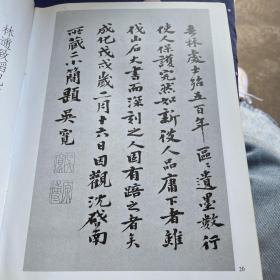 去林處士殆五百年區〻遺墨數行
使人保護宛然如新彼人品庸下者雖
伐山石大書而深刻之人固有踣之者矣
成化戊戌歲二月十六日因觀沈啓南
所藏二小簡題 吳寬
林逋致
20